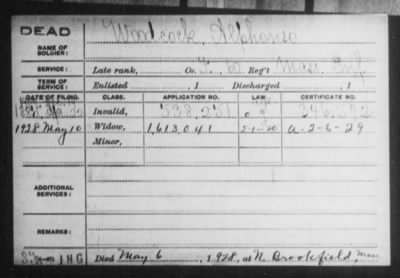 DEAD
Woodcock, Alphonso
NAME OF SOLDIER:
SERVICE: Late rank, Co. F, 60 Reg't Mass. Inf.
TERM OF SERVICE: Enlisted , 1 Discharged , 1
DATE OF FILING. CLASS. APPLICATION NO. LAW. CERTIFICATE NO.
Invalid, 538,251
1928 May 10 Widow, 1,613,041 5-1-20 A-2-6-29
Minor,
ADDITIONAL SERVICES:
REMARKS:
JHG Died May 6, 1928, at N. Brookfield, Mass